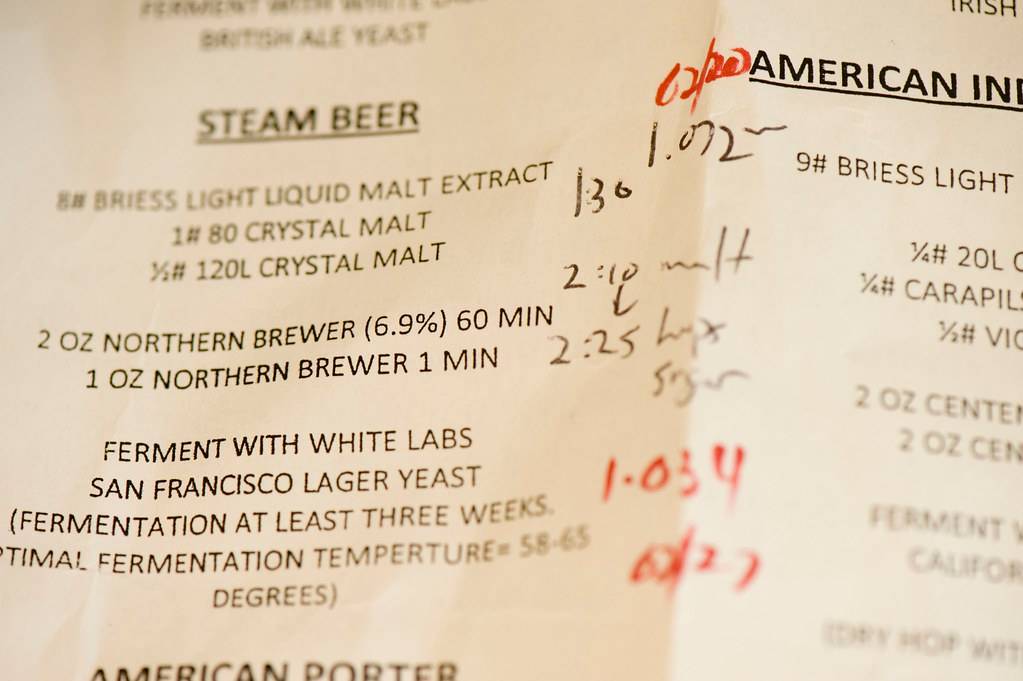 FERMENT WITH WHITE
BRITISH ALE YEAST
STEAM BEER
8# BRIESS LIGHT LIQUID MALT EXTRACT
1# 80 CRYSTAL MALT
½# 120L CRYSTAL MALT
2 OZ NORTHERN BREWER (6.9%) 60 MIN
1 OZ NORTHERN BREWER 1 MIN
FERMENT WITH WHITE LABS
SAN FRANCISCO LAGER YEAST
(FERMENTATION AT LEAST THREE WEEKS.
PTIMAL FERMENTATION TEMPERTURE= 58-65
DEGREES)
AMERICAN PORTER
02/20
1.072
1:30
2:10 malt
2:25 hops
sugar
1.034
02/27
IRISH
AMERICAN IND
9# BRIESS LIGHT
¼# 20L C
¼# CARAPILS
½# VIC
2 OZ CENTEN
2 OZ CEN
FERMENT W
CALIFOR
(DRY HOP WIT